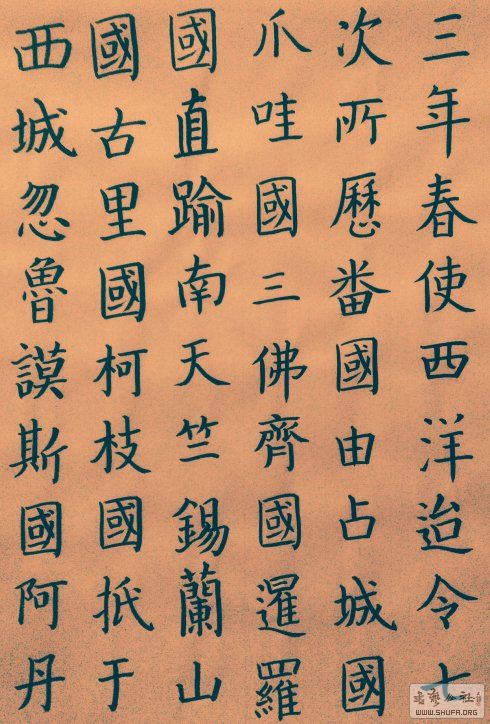 三年春使西洋迨令七
次所歷番國由占城國
爪哇國三佛齊國暹羅
國直踰南天竺錫蘭山
國古里國柯枝國抵于
西城忽魯謨斯國阿丹
书艺公社
WWW.SHUFA.ORG